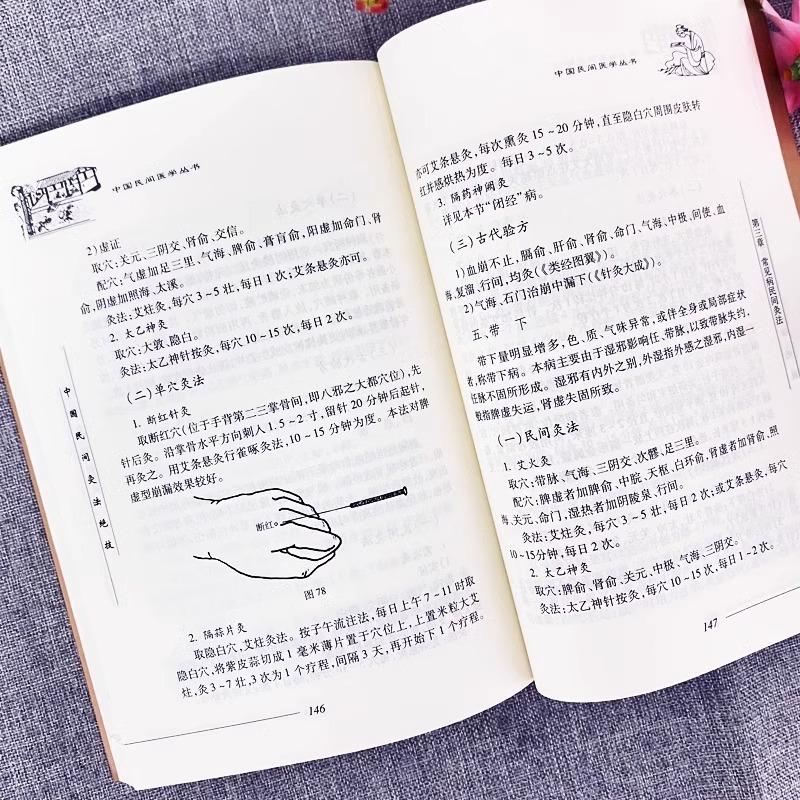 中国民间医学丛书
2)虚证
取穴:关元、三阴交、肾俞、交信。
配穴:气虚加足三里、气海、脾俞、膏肓俞,阳虚加命门、肾
俞,阴虚加照海、太溪。
灸法:艾炷灸,每穴3~5壮,每日1次;艾条悬灸亦可。
2. 太乙神灸
取穴:大敦、隐白。
灸法:太乙神针按灸,每穴10~15次,每日2次。
(二)单穴灸法
1. 断红针灸
取断红穴(位于手背第二三掌骨间,即八邪之大都穴位),先
针后灸。沿掌骨水平方向刺入1.5~2寸,留针20分钟后起针,
再灸之。用艾条悬灸行雀啄灸法,10~15分钟为度。本法对脾
虚型崩漏效果较好。
断红
图78
2. 隔蒜片灸
取隐白穴,艾炷灸法。按子午流注法,每日上午7~11时取
隐白穴,将紫皮蒜切成1毫米薄片置于穴位上,上置米粒大艾
炷,灸3~7壮,3次为1个疗程,间隔3天,再开始下1个疗程。
中国民间灸法绝技
146
中国民间医学丛书
亦可艾条悬灸,每次熏灸15~20分钟,直至隐白穴周围皮肤转
红并感烘热为度。每日3~5次。
3. 隔药神阙灸
详见本节“闭经”病。
(三)古代验方
1)血崩不止,膈俞、肝俞、肾俞、命门、气海、中极、间使、血
海、复溜、行间,均灸(《类经图翼》)。
2)气海、石门治崩中漏下(《针灸大成》)。
五、带下
带下量明显增多,色、质、气味异常,或伴全身或局部症状
者,称带下病。本病主要由于湿邪影响任、带脉,以致带脉失约,
任脉不固所形成。湿邪有内外之别,外湿指外感之湿邪,内湿一
般指脾虚失运,肾虚失固所致。
(一)民间灸法
1. 艾火灸
取穴:带脉、气海、三阴交、次髎、足三里。
配穴:脾虚者加脾俞、中脘、天枢、白环俞,肾虚者加肾俞、照
海、关元、命门,湿热者加阴陵泉、行间。
灸法:艾炷灸,每穴3~5壮,每日2次;或艾条悬灸,每穴
10~15分钟,每日2次。
2. 太乙神灸
取穴:脾俞、肾俞、关元、中极、气海、三阴交。
灸法:太乙神针按灸,每穴10~15次,每日1~2次。
第三章 常见病民间灸法
147